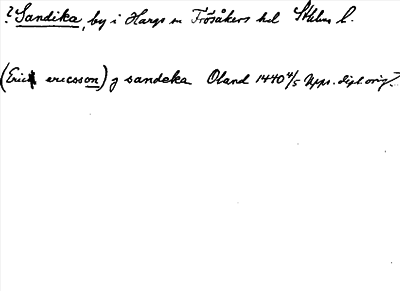 ? Sandika, by i Hargs sn Frösåkers hd Sthlms l.
(Erick ericsson) j sandeka Oland 1440 4/5 Upps. dipl. orig.